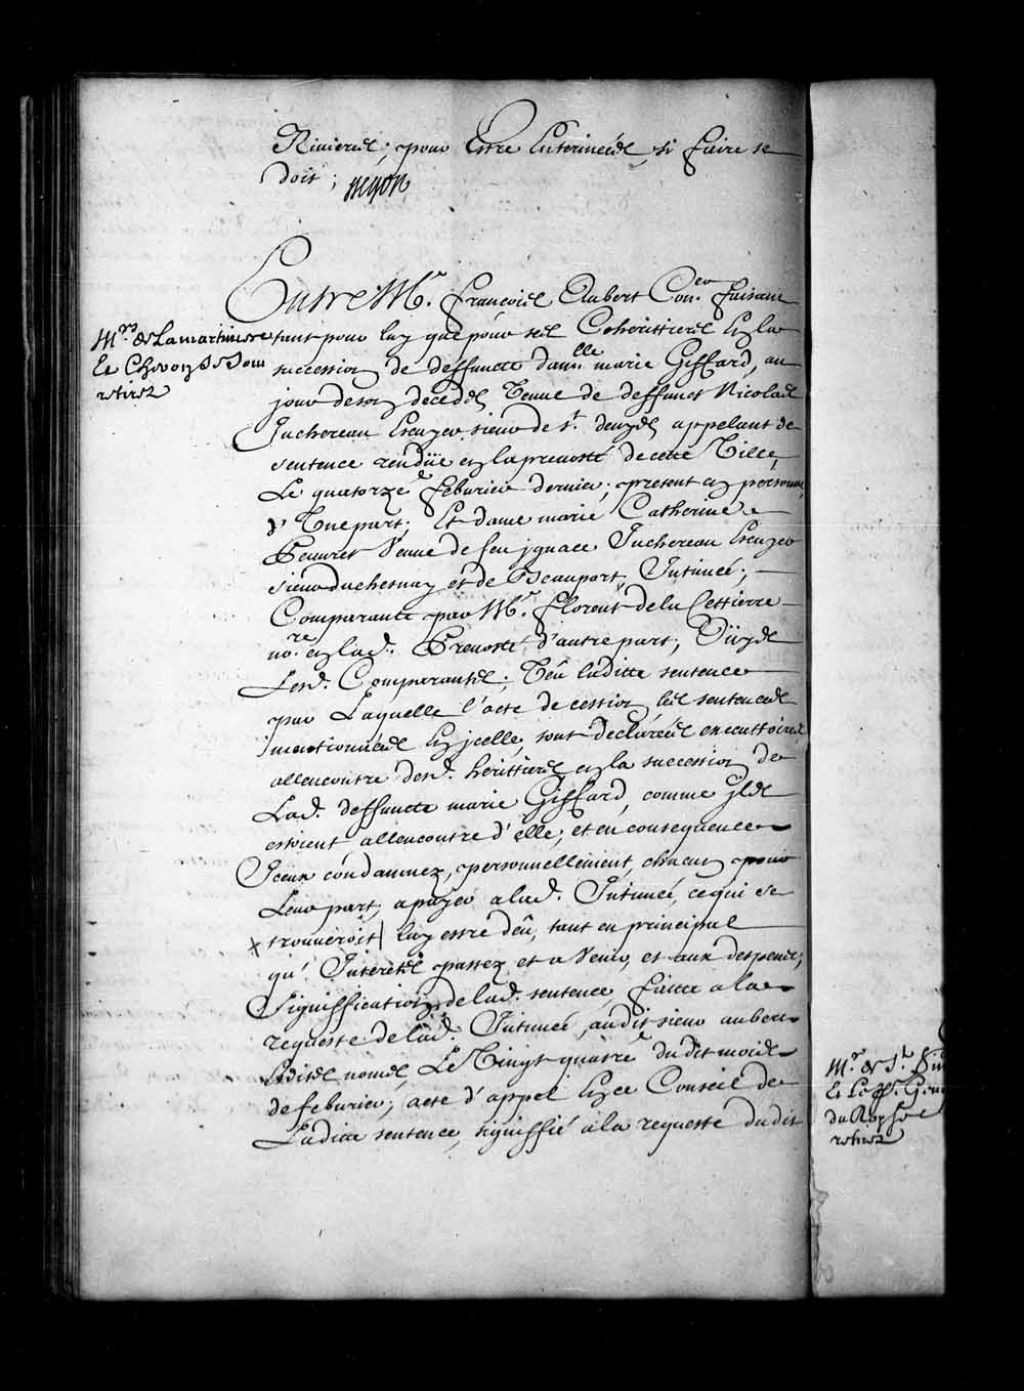 Rivieres; pour Estre Enterinées, si faire se
doit; Begon
Entre Mr. François Aubert Coner. faisant
Mrs. de Lamartiniere
et
retirez
tant pour luy que pour ses Coherittiers En la
succession de deffuncte damlle. marie Giffard, au
jour de son decedz Veuve de deffunct Nicolas
Juchereau Escuyer sieur de St. denys appelant de
sentence rendüe en la prevosté de cette Ville,
Le quatorze febvrier dernier; present en personne
d'Vne part; Et dame marie Catherine
Peuvret Veuve de feu jgnace Juchereau Escuyer
sieur duchesnay et de Beauport, Intimée;
Comparante par Mr. florent de la Cettierre
nore. en lad. Prevosté d'autre part; Oüys
Lesd. Comparants; Veu laditte sentence
par Laquelle l'acte de cession, les sentences
mentionnées En jcelle, sont declarées executtoires
allencontre desd. herittiers en la succession de
Lad. deffuncte marie Giffard, comme jls
estoient allencontre d'elle, et en consequence
Iceux condamnez, personnellement, chacun pour
Leur part, a payer a lad. Intimée, ce qui se
x trouveroit luy estre dêu, tant en principal
qu'Interets passez et a Venir, et aux despens;
Signiffication de lad. sentence, faitte a la
requeste de lad. Intimée, audit sieur aubert
Esdites nomes, Le Vingt quatre dudit mois
de febvrier; acte d'appel En ce Conseil de
Ladite sentence, signiffié a la requeste dudit
Mr. de St.
Et Le Sr.
du
retirez